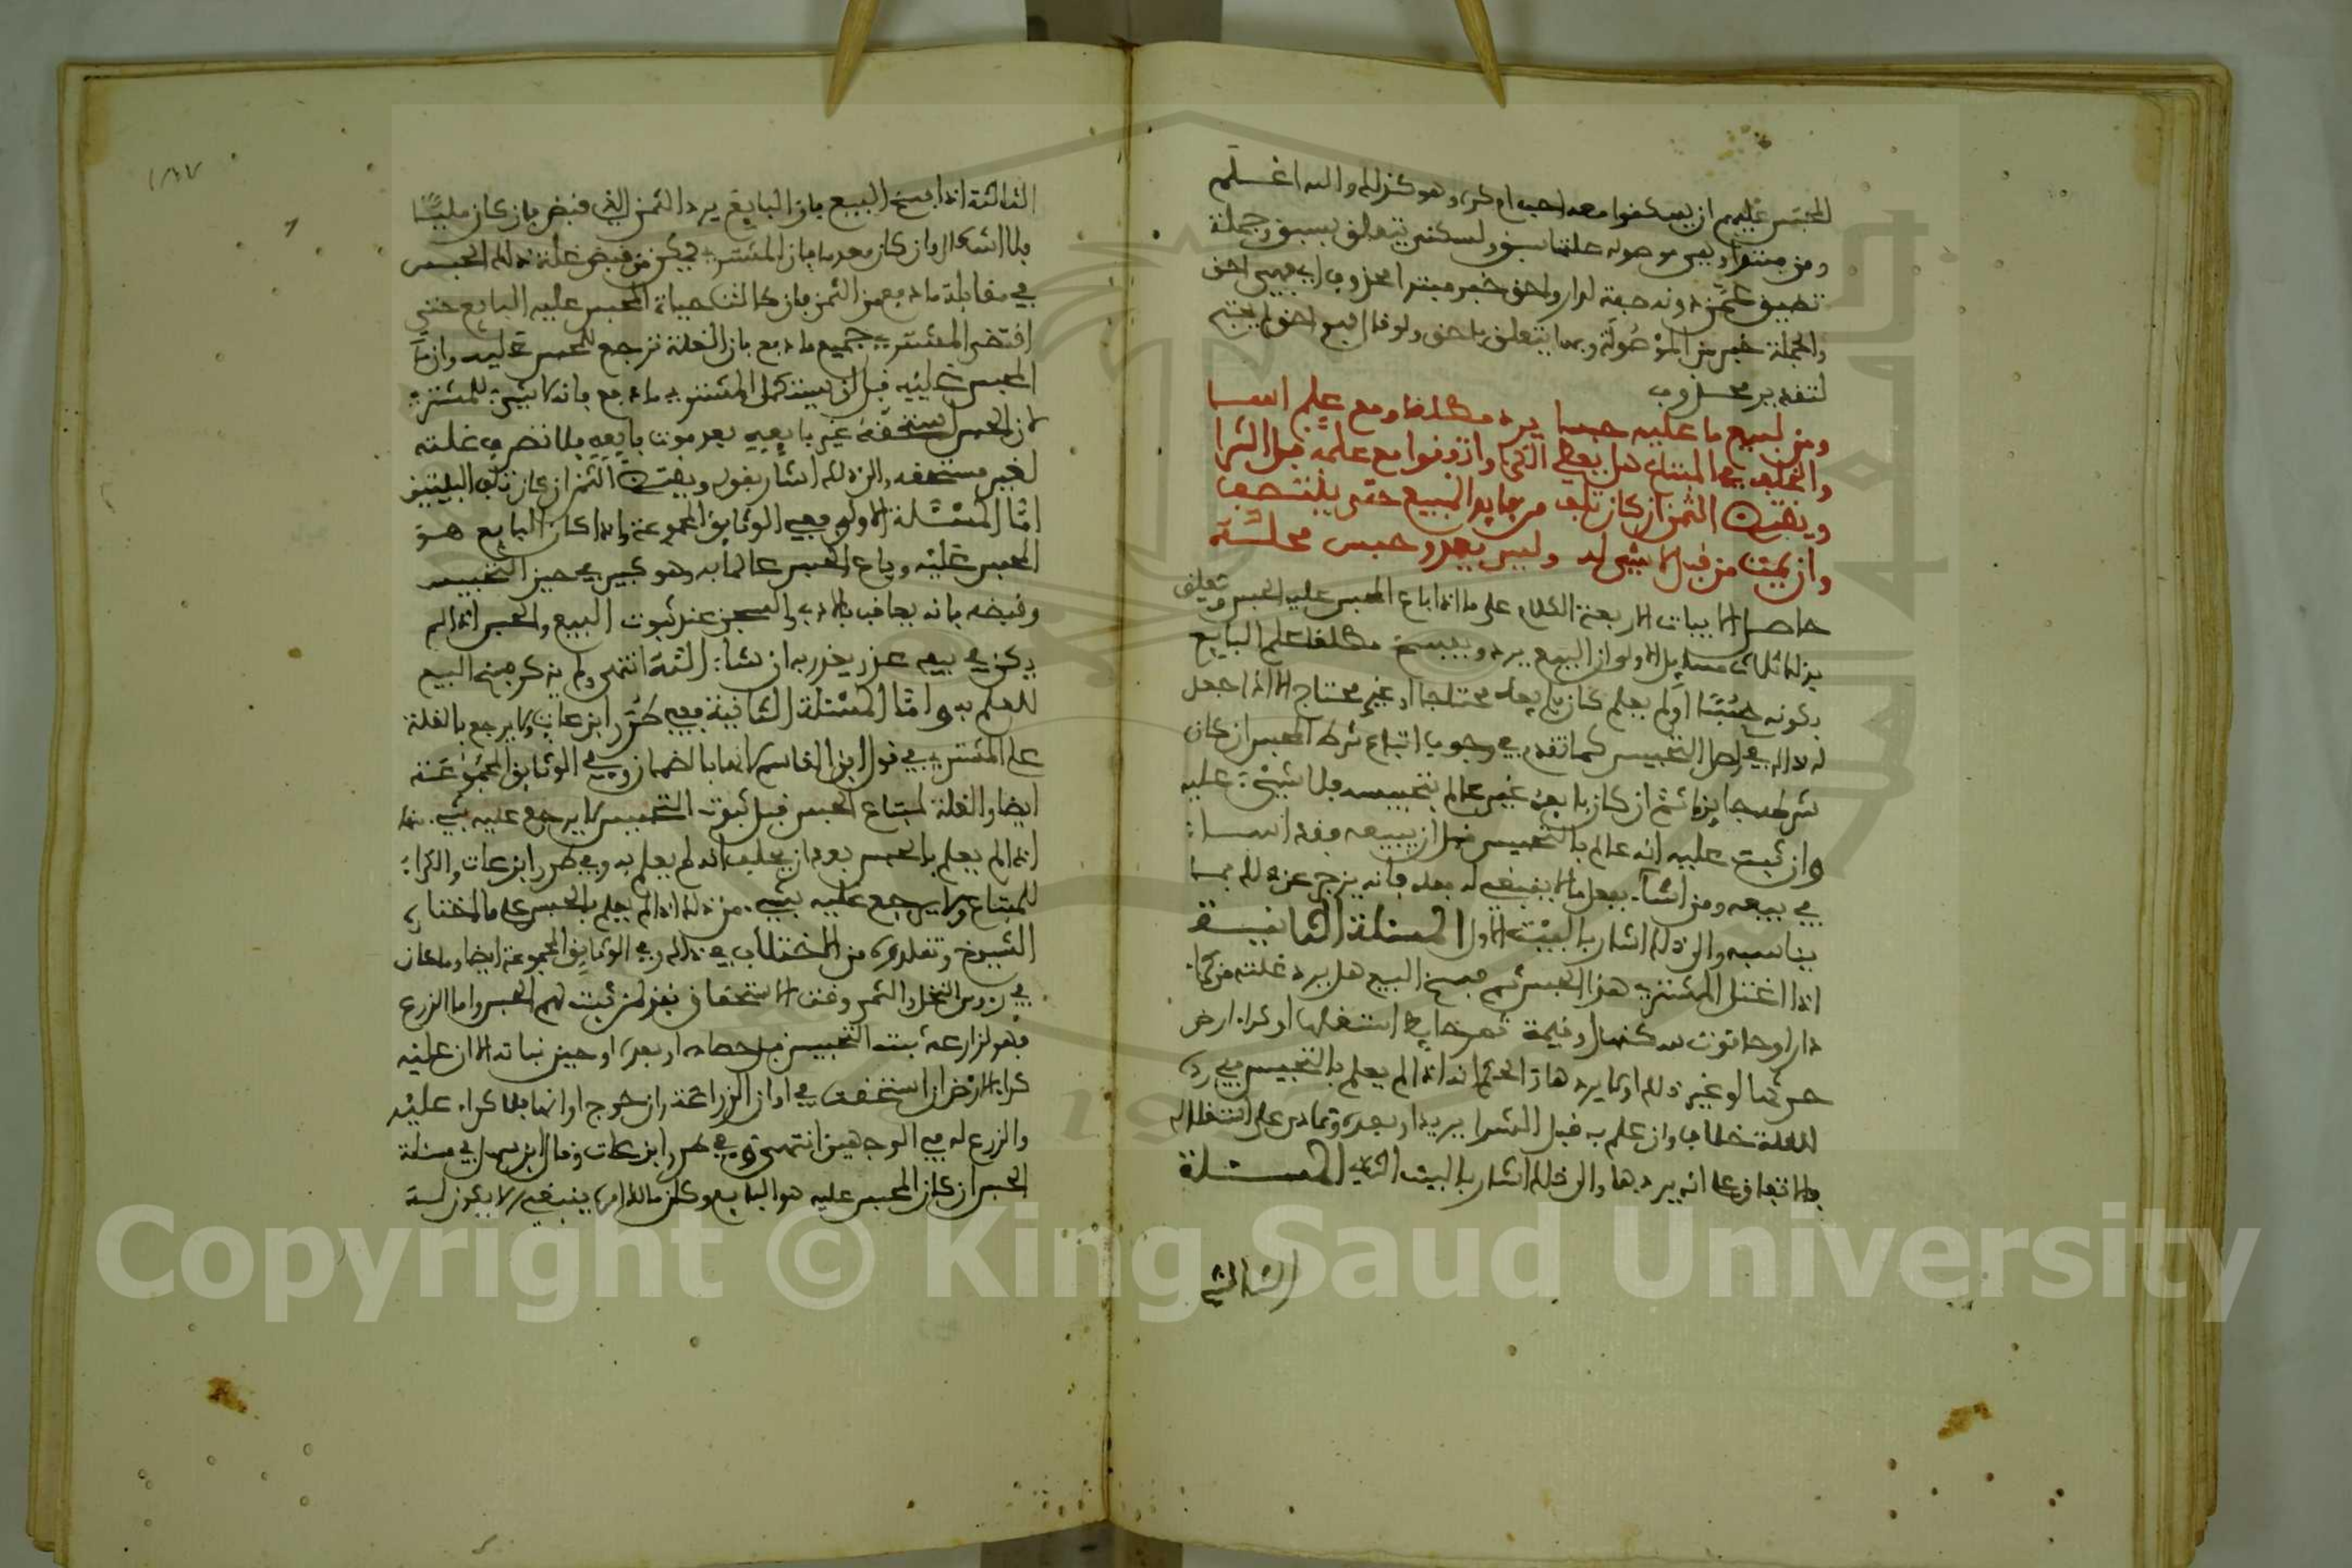 المحبس عليهم ان يسكنوا معه احب ام كره وهو كذلك والله اعلم
ومن مبتدا وهي موصولة صلتها سبق ولسكنى يتعلق بسبق وجملة
تضيق عمن دونه صفة لدار واحق خبر مبتدا محذوف اي فهي احق
والجملة خبر من الموصولة وبها يتعلق باحق ولو قال فهو احق لم يحتج
لتقدير محذوف
ومن لبيع ما عليه حبسا يرد مطلقا ومع علم اسا
والخلف في المبتاع هل يعطي الكرا واتفقوا مع علمه قبل الشرا
ويقتضى الثمن ان كان تلف من فايد المبيع حتى ينتصف
وان يمت من قبل لا شيء له وليس يعدو حبس محله
حاصل الابيات الاربعة الكلام على ما اذا باع المحبس عليه الحبس وتعلق
بذلك ثلاث مسايل الاولى ان البيع يرد ويفسخ مطلقا علم البايع
بكونه حبسا او لم يعلم كان بايعه محتاجا او غير محتاج الا اذا جعل
له ذلك في اصل التحبيس كما تقدم في وجوب اتباع شرط المحبس ان كان
شرطه جايزا ثم ان كان بايعه غير عالم بتحبيسه فلا شيء عليه
وان ثبت عليه انه عالم بالتحبيس قبل ان يبيعه فقد اسا
في بيعه ومن اسا بفعل ما لا ينبغي له فعله فانه يزجر عن ذلك بما
يناسبه والى ذلك اشار بالبيت الاول المسئلة الثانية
اذا اغتل المشتري هذا الحبس ثم فسخ البيع هل يرد غلته من كراء
دار او حانوت سكنها او قيمة ثمرة استغلها او كراء ارض
حرثها او غير ذلك او لا يرد هاذا الحكم انه اذا لم يعلم بالتحبيس ففي رد
الغلة خلاف وان علم به قبل الشرا يريد او بعده وتمادى على استغلاله
فالاتفاق على انه يردها والى ذلك اشار بالبيت الثاني المسئلة
الثالثة
الثالثة اذا فسخ البيع فان البايع يرد الثمن الذي قبض فان كان مليا
فلا اشكال وان كان معدما فان المشتري يمكن من قبض غلة ذلك الحبس
في مقابلة ما دفع من الثمن فان طالت حياة المحبس عليه البايع حتى
اقتضى المشتري جميع ما دفع فان الغلة ترجع للمحبس عليه وان مات
المحبس عليه قبل ان يستكمل المشتري ما دفع فانه لا شيء للمشتري
لان الحبس يستحقه غير بايعه بعد موت بايعه فلا تصرف غلته
لغير مستحقه والى ذلك اشار بقوله ويقتضى الثمن ان كان تلف البيتين
اما المسئلة الاولى ففي الوثايق المجموعة واذا كان البايع هو
المحبس عليه وباع الحبس عالما به وهو كبير في حين التحبيس
وقبضه فانه يعاقب بالادب والسجن عند ثبوت البيع والحبس اذا لم
يكن في بيعه عذر يعذر به ان شاء الله انتهى ولم يذكر فسخ البيع
للعلم به واما المسئلة الثانية ففي طرر ابن عات ولا يرجع بالغلة
على المشتري في قول ابن القاسم لانها بالضمان وفي الوثايق المجموعة
ايضا والغلة لمبتاع الحبس قبل ثبوت التحبيس لا يرجع عليه بشيء منها
اذا لم يعلم بالحبس بعد ان يحلف انه لم يعلم به وفي طرر ابن عات والكراء
للمبتاع ولا يرجع عليه بشيء من ذلك اذا لم يعلم بالحبس على ما اختاره
الشيوخ وتقلدوه من الاختلاف في ذلك وفي الوثايق المجموعة ايضا وما كان
في رءوس النخل والشجر وقت الاستحقاق فهو لمن ثبت لهم الحبس واما الزرع
فهو لزارعه ثبت التحبيس قبل حصاده او بعده او حين نباته الا ان عليه
كراء الارض ان استحقت في اوان الزراعة وان خرج اوانها فلا كراء عليه
والزرع له في الوجهين انتهى وفي طرر ابن عات وقال ابن سهل في مسئلة
الحبس ان كان المحبس عليه هو البايع وكان مالكا امره ينبغي الا يكون له